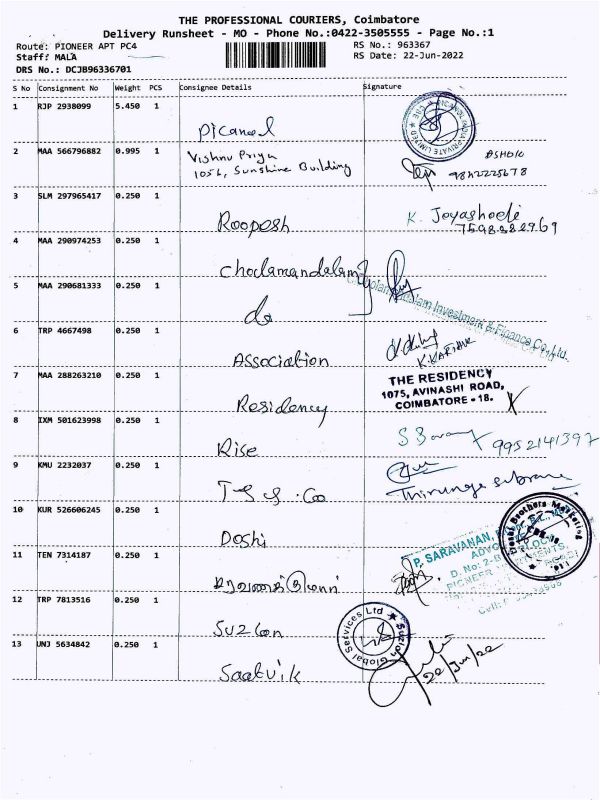 THE PROFESSIONAL COURIERS, Coimbatore
Delivery Runsheet - MO - Phone No.:0422-3505555 - Page No.:1
Route: PIONEER APT PC4 RS No.: 963367
Staff: MALA RS Date: 22-Jun-2022
DRS No.: DCJB96336701
S No Consignment No Weight PCS Consignee Details Signature
1 RJP 2938099 5.450 1
Picanol
INDIA PRIVATE LIMITED CBE
2 MAA 566796882 0.995 1 Vishnu Priya
1056, Sunshine Building
9842225678
3 SLM 297965417 0.250 1
Roopesh K. Jeyashoeli
7598882969
4 MAA 290974253 0.250 1
Cholamandalam
Investment & Finance Co. Ltd.
5 MAA 290681333 0.250 1
do
6 TRP 4667498 0.250 1
Association K.KARTHIK
7 MAA 288263210 0.250 1 THE RESIDENCY
1075, AVINASHI ROAD,
COIMBATORE - 18.
Residency
8 IXM 501623998 0.250 1
Rise 9952141397
9 KMU 2232037 0.250 1
10 KUR 526606245 0.250 1
Doshi
Doshi Brothers Marketing
P. SARAVANAN,
ADVOCATE
D. No: 2-B
PIONEER APARTMENTS
Cell:
11 TEN 7314187 0.250 1
12 TRP 7813516 0.250 1
Suzlon
Suzlon Global Services Ltd
13 UNJ 5634842 0.250 1
Saatvik 22/Jun/22